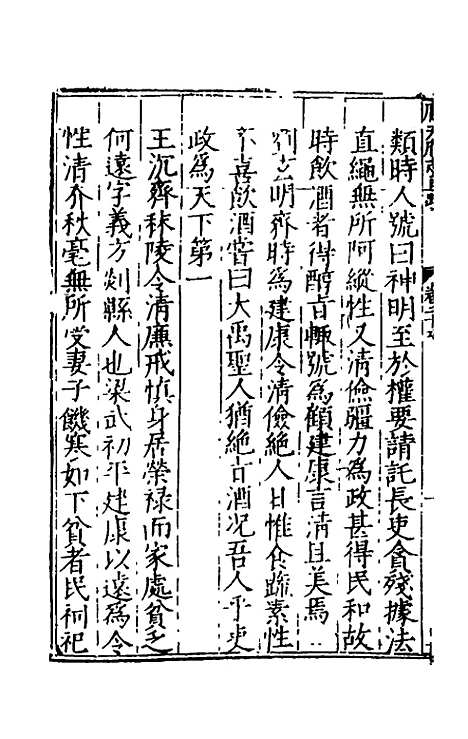 類時人號曰神明至於權要請託長吏貪殘據法
直繩無所阿縱性又清儉彊力為政甚得民和故
時飲酒者得醇旨輒號為顧建康言清且美焉
明齊時為建康令清儉絕人日惟食蔬素性
不喜飲酒嘗曰大禹聖人猶絕旨酒况吾人乎吏
政為天下第一
王沉齊秣陵令清廉戒慎身居榮祿而家處貧乏
何遠字義方剡縣人也梁武初平建康以遠為令
性清介秋毫無所受妻子饑寒如下貧者民祠祀